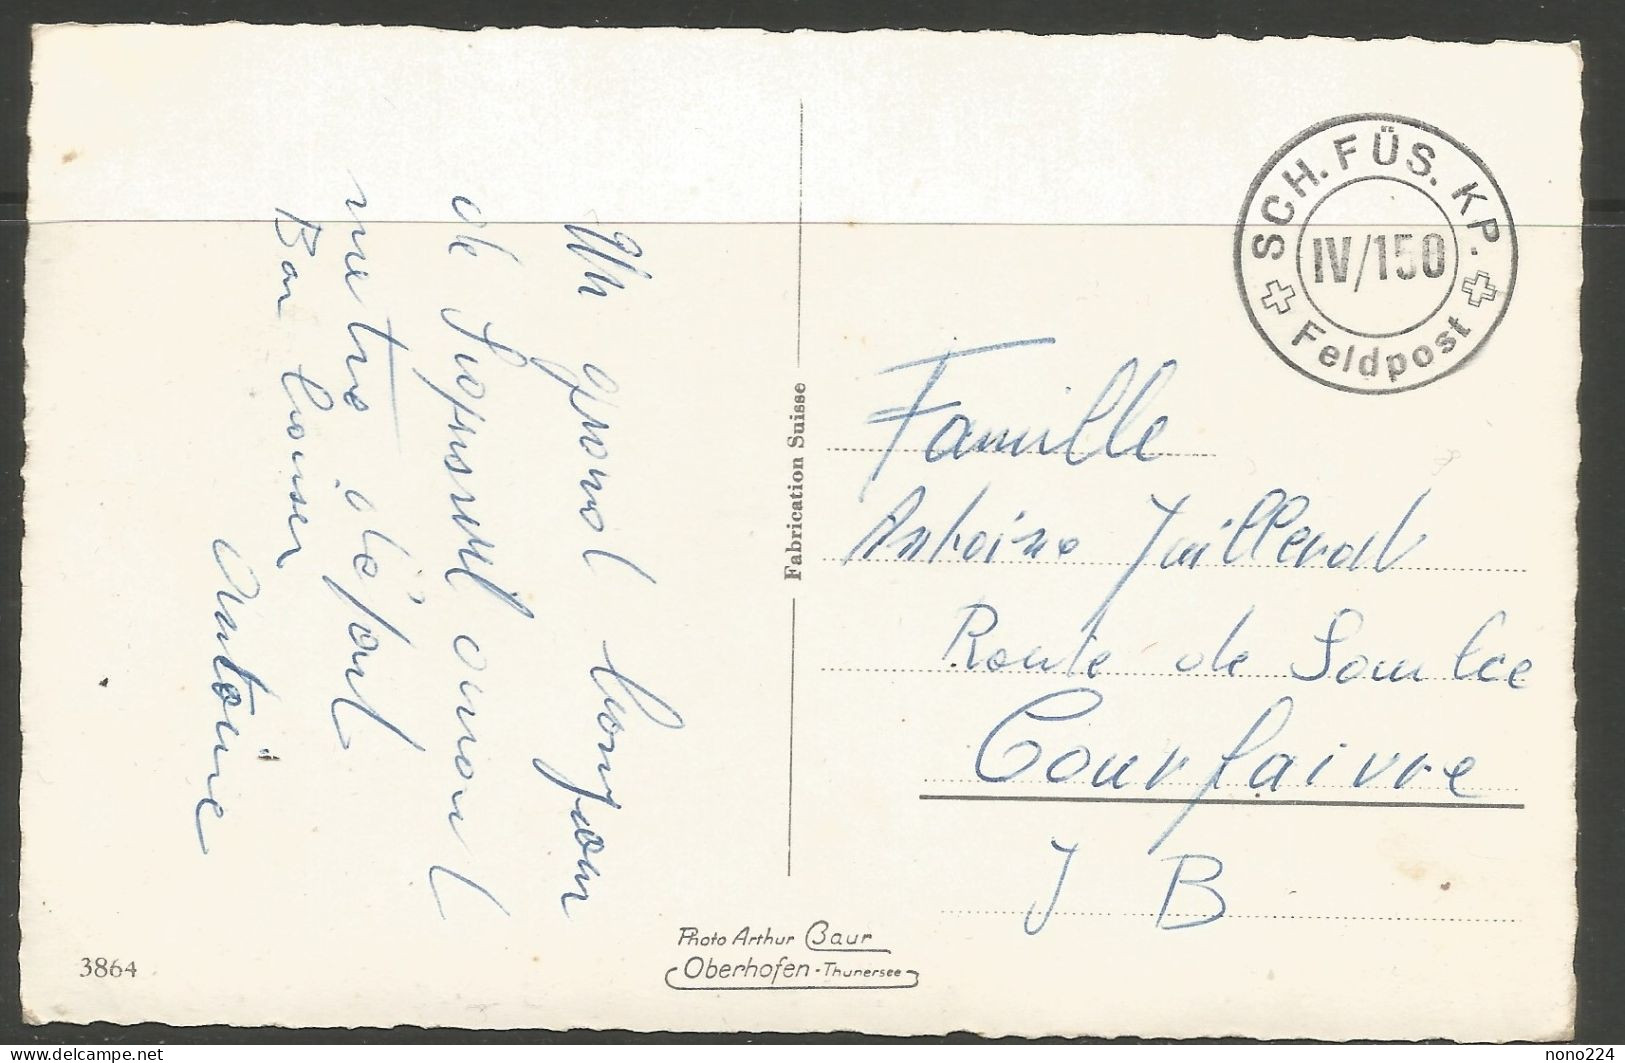 Un grand bonjour
de Sigriswil avant
notre départ
Bon baiser
Antoine
Fabrication Suisse
SCH. FÜS. KP.
IV/150
Feldpost
Famille
Antoine Juillerat
Route de Soulce
Courfaivre
J B
Photo Arthur Baur
Oberhofen - Thunersee
3864
delcampe.net
nono224